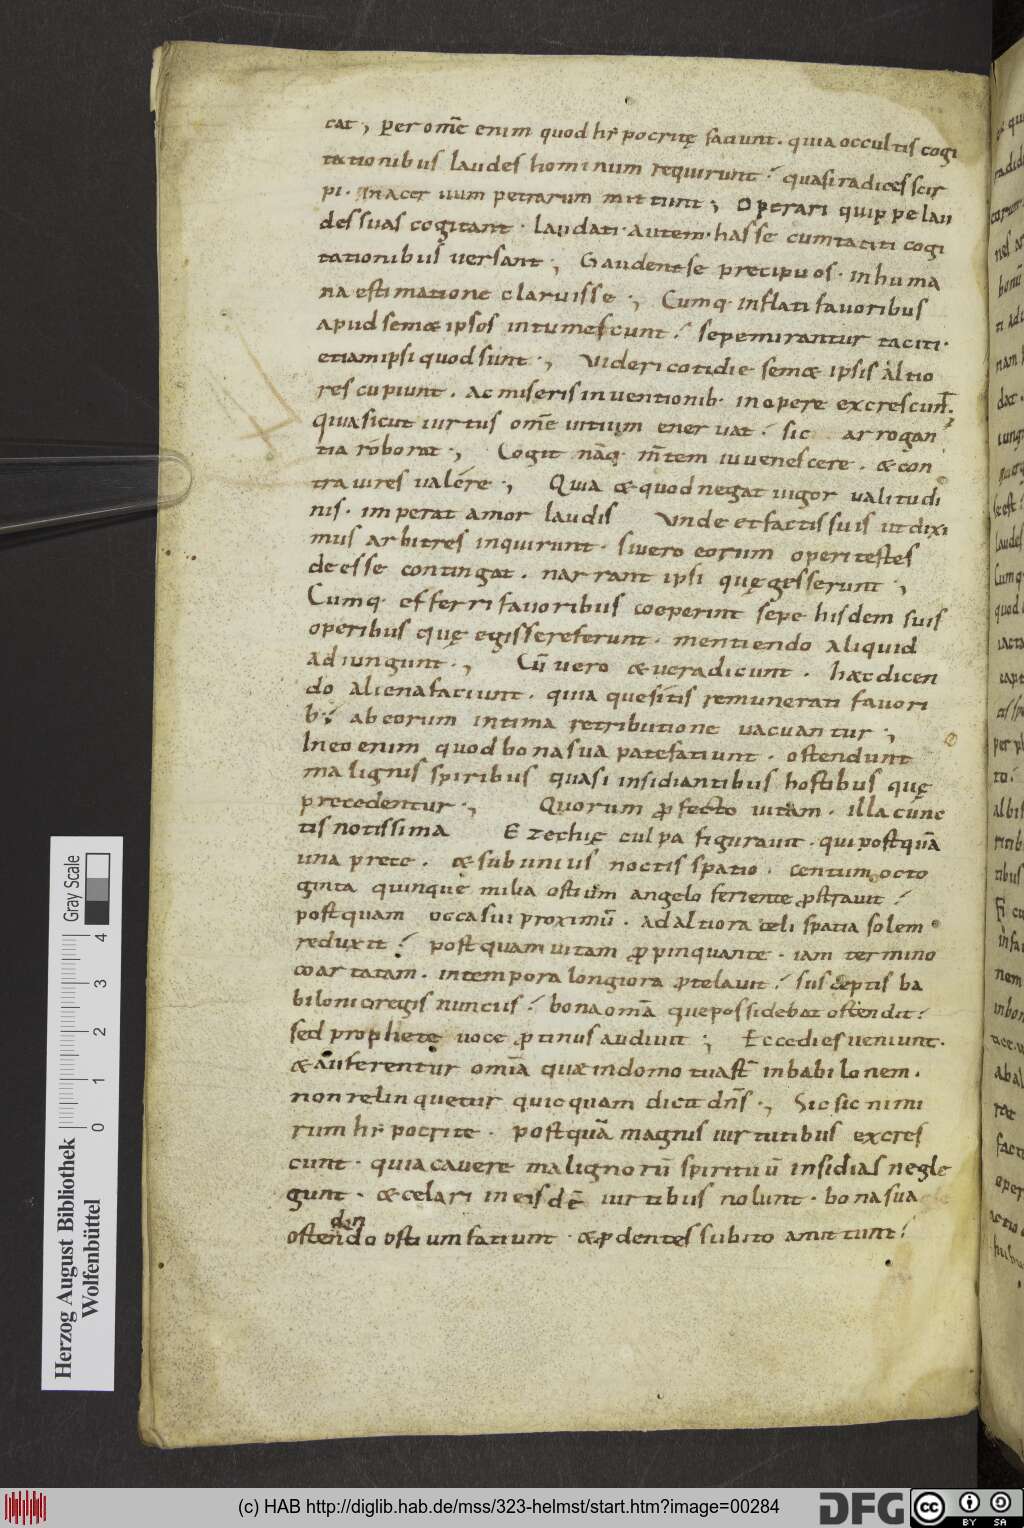 cat ; per om̄e enim quod hẏpocritę faciunt . quia occultis cogi
tationibus laudes hominum requirunt ; quasi radices scir
pi . in acer uum petrarum mittunt ; Operari quippe lau
des suas cogitant . laudati . autem . has se cum taciti cogi
tationibus uersant ; Gaudent se precipuos . in huma
na estimatione claruisse ; Cumq. inflati fauoribus
apud sem& ipsos intumescunt ; sepe mirantur taciti .
etiam ipsi quod sunt ; Uideri cotidie sem& ipsis altio
res cupiunt . ac miseris inuentionib. in opere excrescun̄t ;
quia sicut uirtus om̄e uitium eneruat ; sic arrogan
tia roborat ; Cogit nāq. m̄tem iuuenescere . & con
tra uires ualere ; Quia & quod negat uigor ualitudi
nis . imperat amor laudis Unde et factis suis ut dixi
mus arbitres inquirunt . si uero eorum operi testes
de esse contingat . narrant ipsi quę gesserunt ;
Cumq. efferri fauoribus coeperint sepe hisdem suis
operibus quę egisse referunt . mentiendo aliquid
adiungunt ; Cū uero & uera dicunt . hæc dicen
do aliena faciunt . quia quesitis remunerati fauori
b; ab eorum intima retributione uacuantur ;
In eo enim quod bona sua patefatiunt . ostendunt
malignis spiribus quasi insidiantibus hostibus quę
precedentur ; Quorum ꝓfecto uitam . illa cunc
tis notissima Ezechię culpa figurauit . qui postquā
una prece . & sub unius noctis spatio . centum octo
ginta quinque milia ostium angelo feriente ꝓstrauit ;
postquam occasui proximū . ad altiora celi spatia solem
reduxit ; postquam uitam ꝓpinquante . iam termino
coartatam . in tempora longiora ꝓtelauit ; susceptis ba
bilonici regis nuncus ; bona om̄a que possidebat ostendit ;
sed prophete uoce ꝓtinus audiuit ; Ecce dies ueniunt .
& auferentur om̄ia quæ in domo tua st̄ in babilonem .
non relinquetur quicquam dicit dn̄s ; Sic sic nimi
rum hẏpocrite . postquā magnis uirtutibus excres
cunt . quia cauere malignorū spirituū insidias negle
gunt . & celari in eisdē uirtibus nolunt . bona sua
den
ostendo ostium fatiunt . & ꝓdentes subito amittunt ;
Herzog August Bibliothek
Wolfenbüttel
0 1 2 3 4
Gray Scale
(c) HAB http://diglib.hab.de/mss/323-helmst/start.htm?image=00284
DFG
cc BY SA